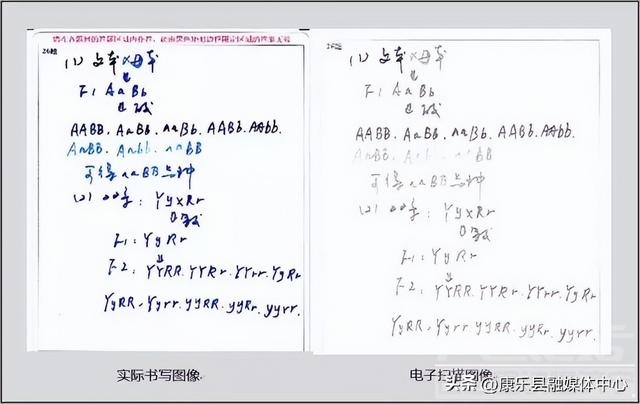 请在各题目的答题区域内作答，超出黑色矩形边框限定区域的答案无效
26题
(1) 父本×母本
F1 AaBb
AABB. AaBb. aaBb. AABb. AAbb.
AaBB. Aabb. aaBB
可得aaBB品种
(2) YyxRr
F1: YyRr
F2: YYRR. YYRr. YYrr. YyRr
YyRR. Yyrr. yyRR. yyRr. yyrr.
实际书写图像
26题
(1) 父本×母本
F1 AaBb
AABB. AaBb. aaBb. AABb. AAbb.
AaBB. Aabb. aaBB
可得aaBB品种
(2) YyxRr
F1: YyRr
F2: YYRR. YYRr. YYrr. YyRr
YyRR. Yyrr. yyRR. yyRr. yyrr.
电子扫描图像
头条@康乐县融媒体中心